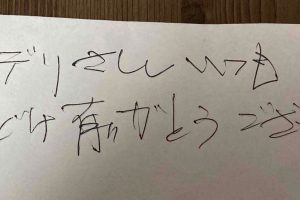 デリさん いつも
どけ有がとうござ